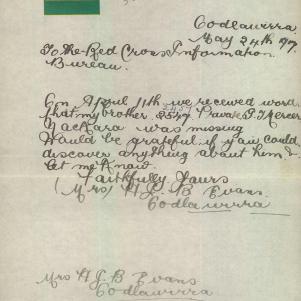 Codlawirra.
May 24th 1917.
To the Red Cross Information
Bureau.
On April 11th we received word
that my brother, 2547 Private J. Mercer
Yackara was missing
Would be grateful if you could
discover anything about him &
let me know
Faithfully Yours
(Mrs) H J. B Evans.
Codlawirra
Mrs H J B Evans
Codlawirra